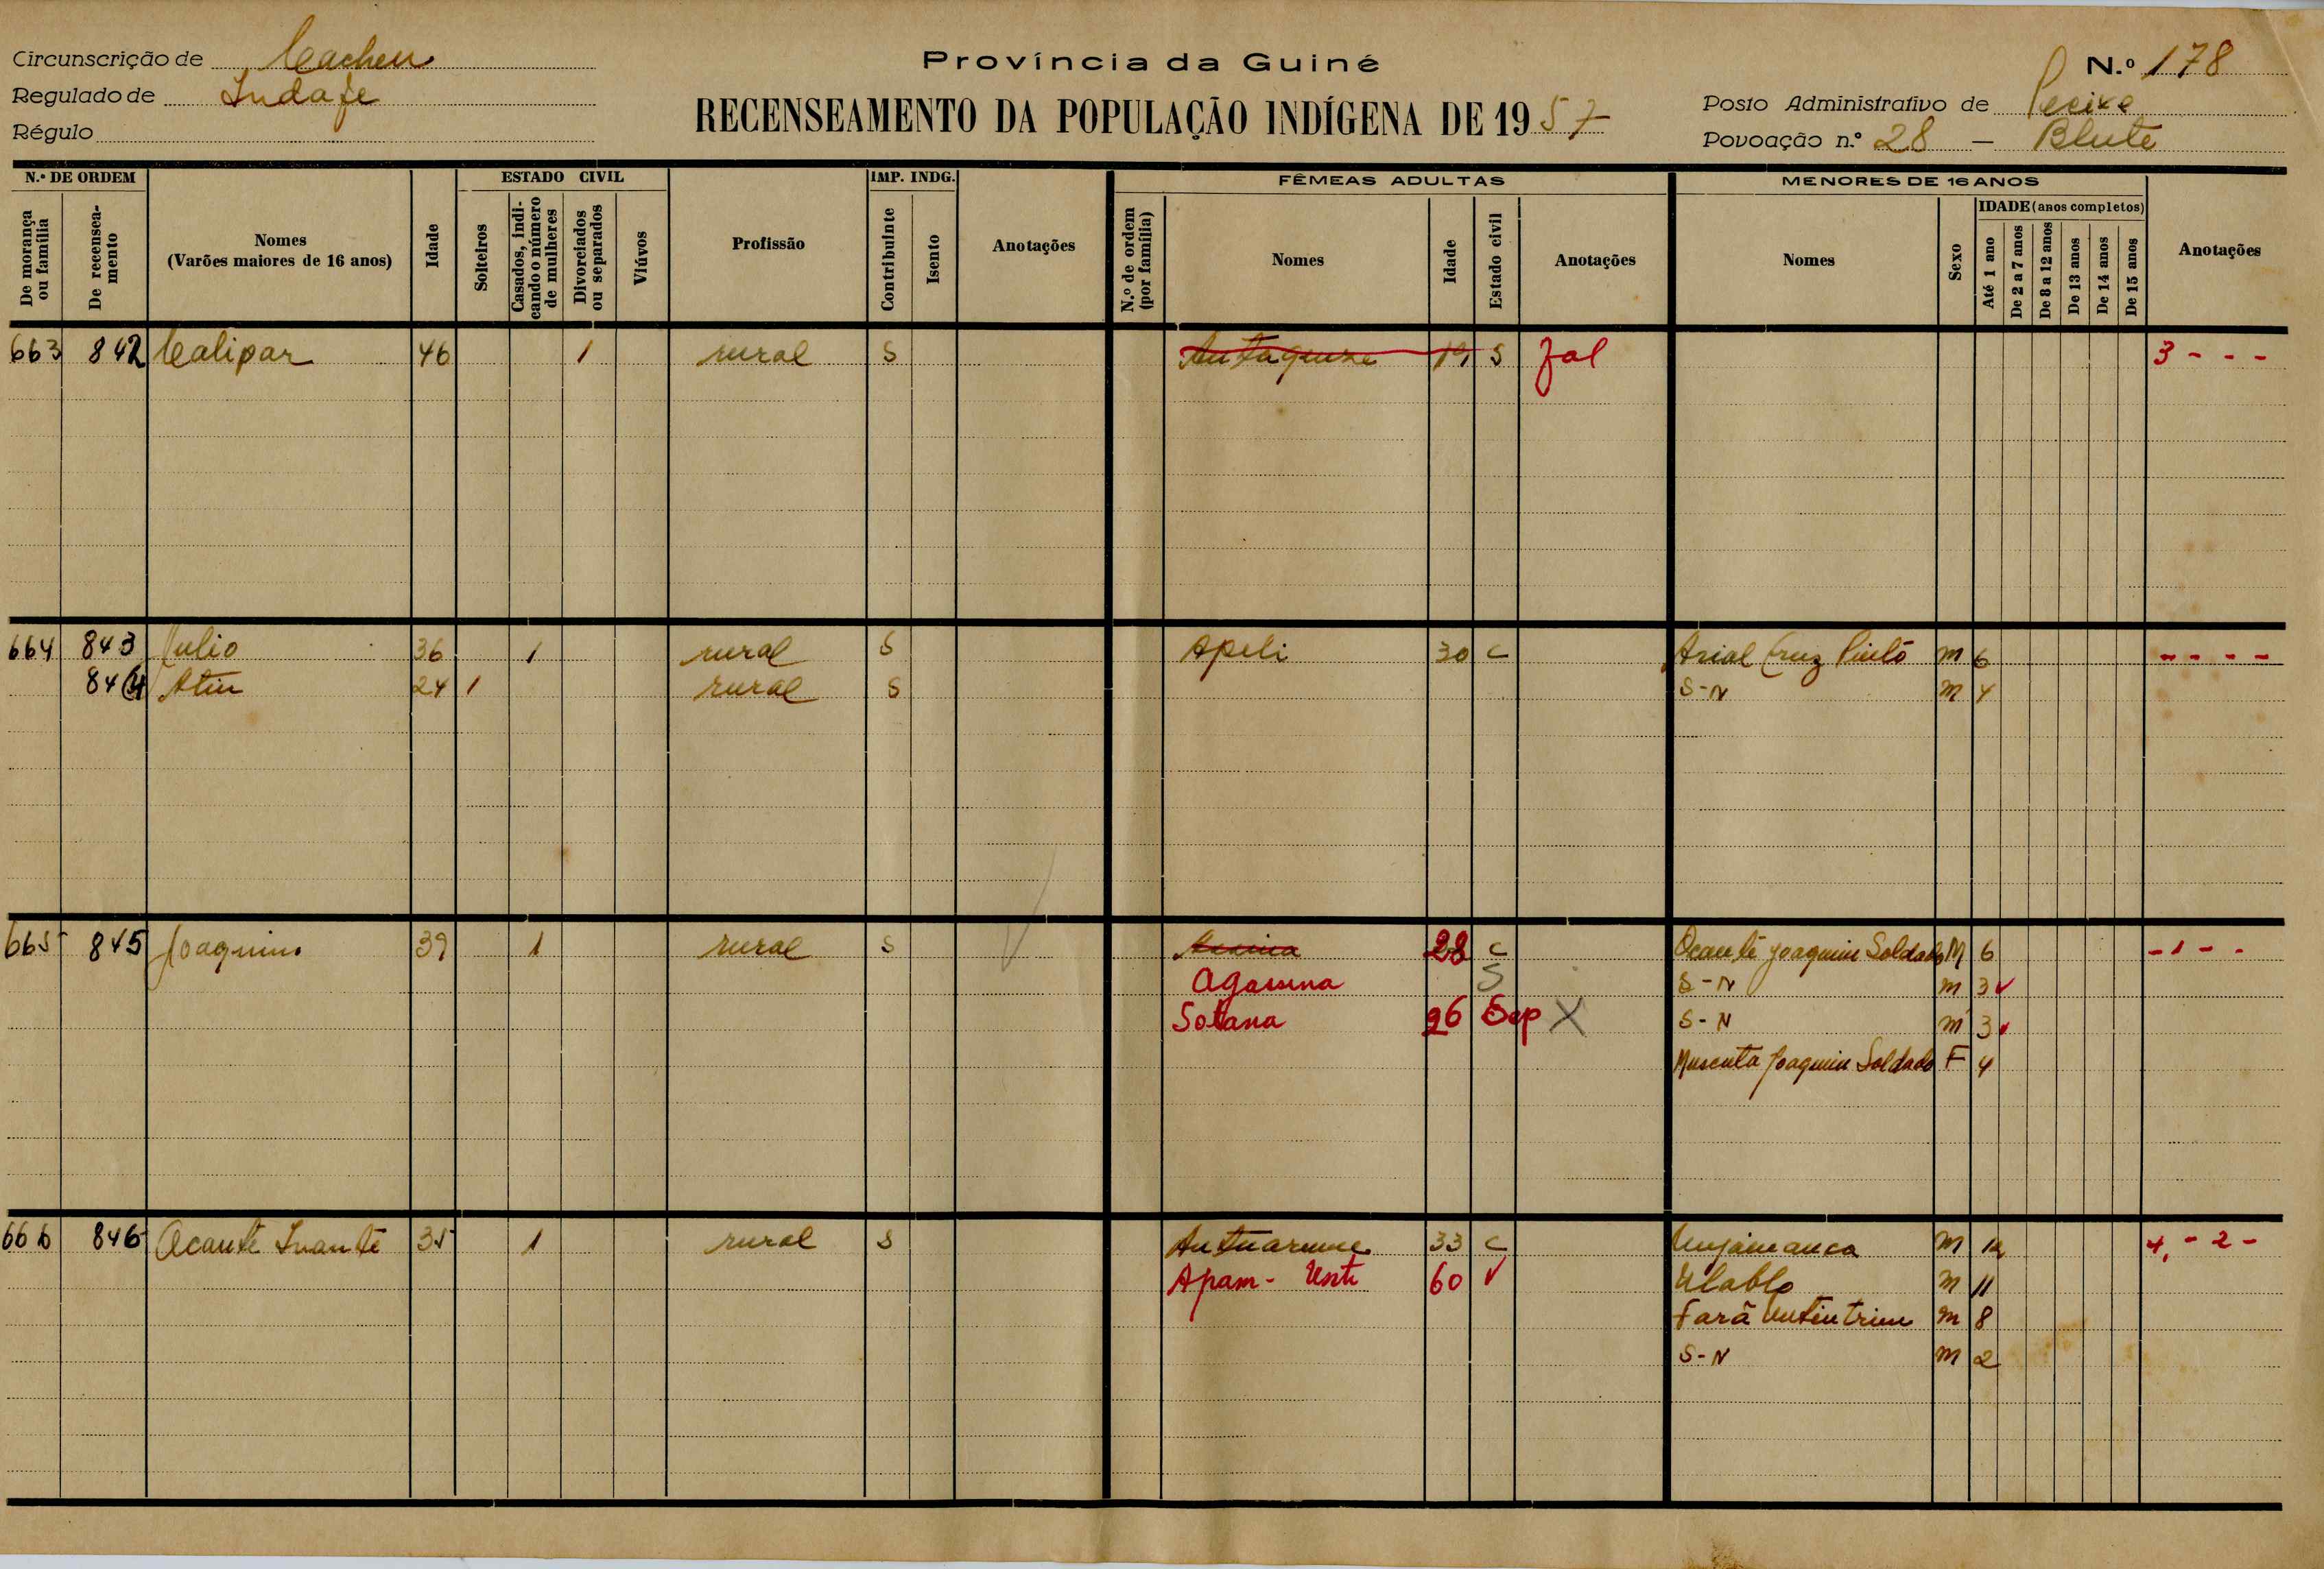 Circunscrição de Cacheu
Regulado de Indafe
Régulo
Província da Guiné
RECENSEAMENTO DA POPULAÇÃO INDÍGENA DE 1957
N.º 178
Posto Administrativo de Pecixe
Povoação n.º 28 – Blute
N.º DE ORDEM
De morança ou família
De recenseamento
Nomes
(Varões maiores de 16 anos)
Idade
ESTADO CIVIL
Solteiros
Casados, indicando o número de mulheres
Divorciados ou separados
Viúvos
Profissão
IMP. INDG.
Contribuinte
Isento
Anotações
FÊMEAS ADULTAS
N.º de ordem (por família)
Nomes
Idade
Estado civil
Anotações
MENORES DE 16 ANOS
Nomes
Sexo
IDADE (anos completos)
Até 1 ano
De 2 a 7 anos
De 8 a 12 anos
De 13 anos
De 14 anos
De 15 anos
Anotações
663 842 Calipar 46 1 rural S 19 S fal 3 - - -
664 843 Julio 36 1 rural S Apeli 30 C Arial Cruz Pintó M 6 - - - -
844 Atin 24 1 rural S S-N M 4
665 845 Joaquim 39 1 rural S 28 C Ocanté Joaquim Soldado M 6 - 1 - -
Agassena S S-N M 3 ✓
Sotana 26 Sep X S-N M 3 ✓
Muscuta Joaquim Soldado F 4
666 846 Ocanté Inanté 35 1 rural S 33 C M 12 4, - 2 -
Apam - 60 V Ulablo M 11
Fará M 8
S-N M 2